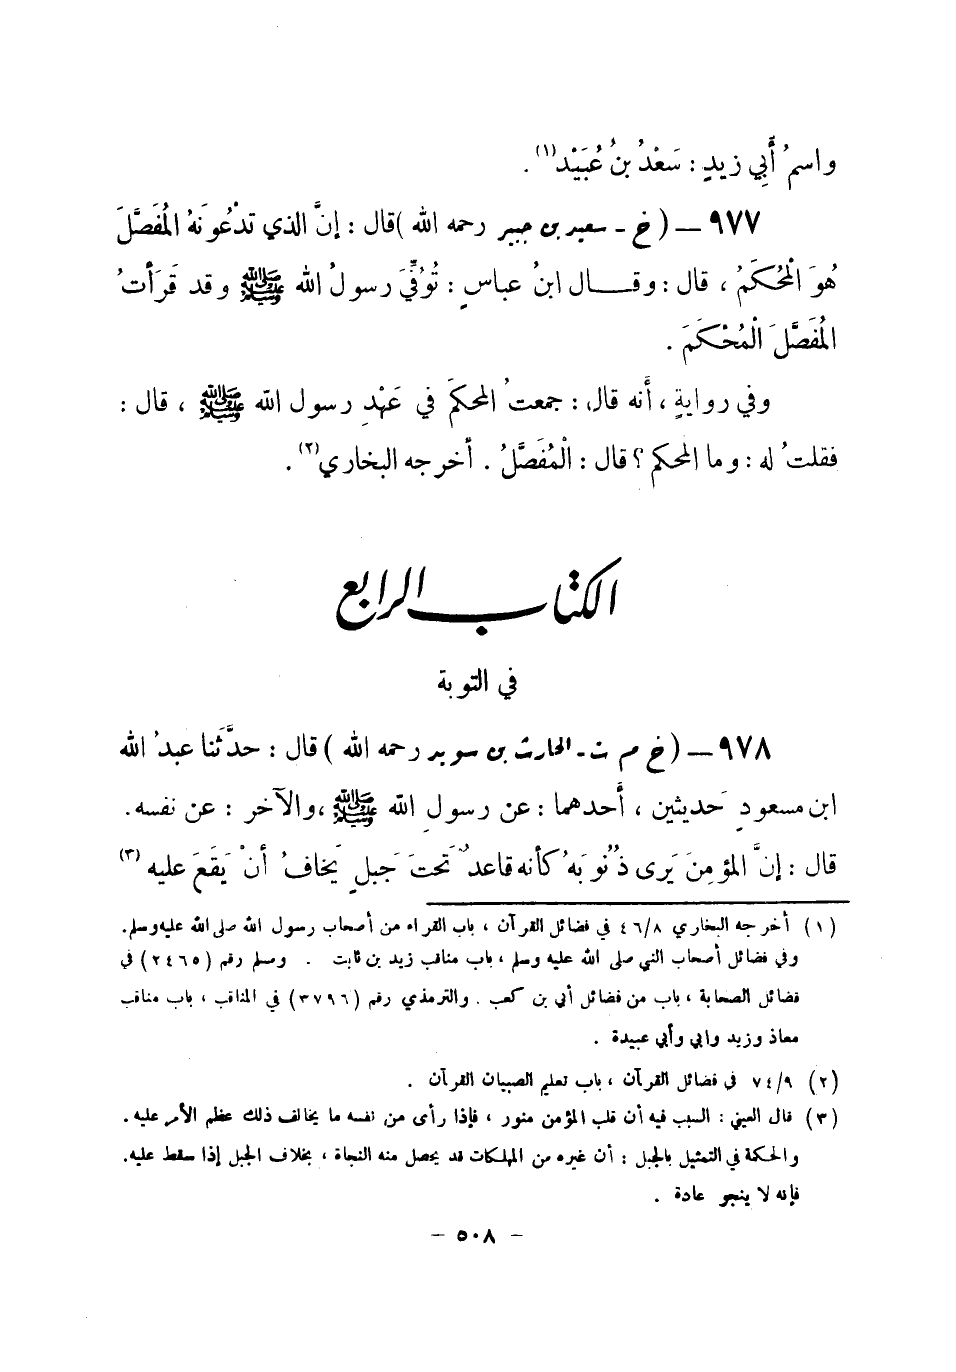 واسمُ أَبي زيدٍ : سَعْدُ بنُ عُبَيْد(١) .
٩٧٧ – ( خ - سعيد بن جبير رحمه الله ) قال : إنَّ الذي تدْعُونَهُ المُفَصَّلَ
هُوَ الْمُحْكَمُ ، قال : وقـــال ابنُ عباسٍ : تُوُفِّيَ رسولُ الله ﷺ وقد قَرَأتُ
المُفَصَّلَ الْمُحْكَمَ .
وفي روايةٍ ، أَنه قال : جمعتُ المحكَمَ في عَهْدِ رسول الله ﷺ ، قال :
فقلتُ له : وما المحكم ؟ قال : الْمُفَصَّلُ . أخرجه البخاري(٢) .
الكتاب الرابع
في التوبة
٩٧٨ – ( خ م ت - الحارث بن سويد رحمه الله ) قال : حدَّثنا عبدُ الله
ابن مسعودٍ حَديثين ، أَحدهما : عن رسولِ الله ﷺ ، والآخر : عن نفسه .
قال : إنَّ المؤمِنَ يَرى ذُنُوبَهُ كأنه قاعدٌ تَحتَ جَبلٍ يَخافُ أنْ يَقَعَ عليه (٣)
(١) أخرجه البخاري ٤٦/٨ في فضائل القرآن ، باب القراء من أصحاب رسول الله صلى الله عليه وسلم.
وفي فضائل أصحاب النبي صلى الله عليه وسلم ، باب مناقب زيد بن ثابت . ومسلم رقم (٢٤٦٥) في
فضائل الصحابة ، باب من فضائل أبي بن كعب . والترمذي رقم (٣٧٩٦) في المناقب ، باب مناقب
معاذ وزيد وابي وأبي عبيدة .
(٢) ٧٤/٩ في فضائل القرآن ، باب تعليم الصبيان القرآن .
(٣) قال العيني : السبب فيه أن قلب المؤمن منور ، فإذا رأى من نفسه ما يخالف ذلك عظم الأمر عليه.
والحكمة في التمثيل بالجبل : أن غيره من المهلكات قد يحصل منه النجاة ، بخلاف الجبل إذا سقط عليه.
فإنه لا ينجو عادة .
– ٥٠٨ –